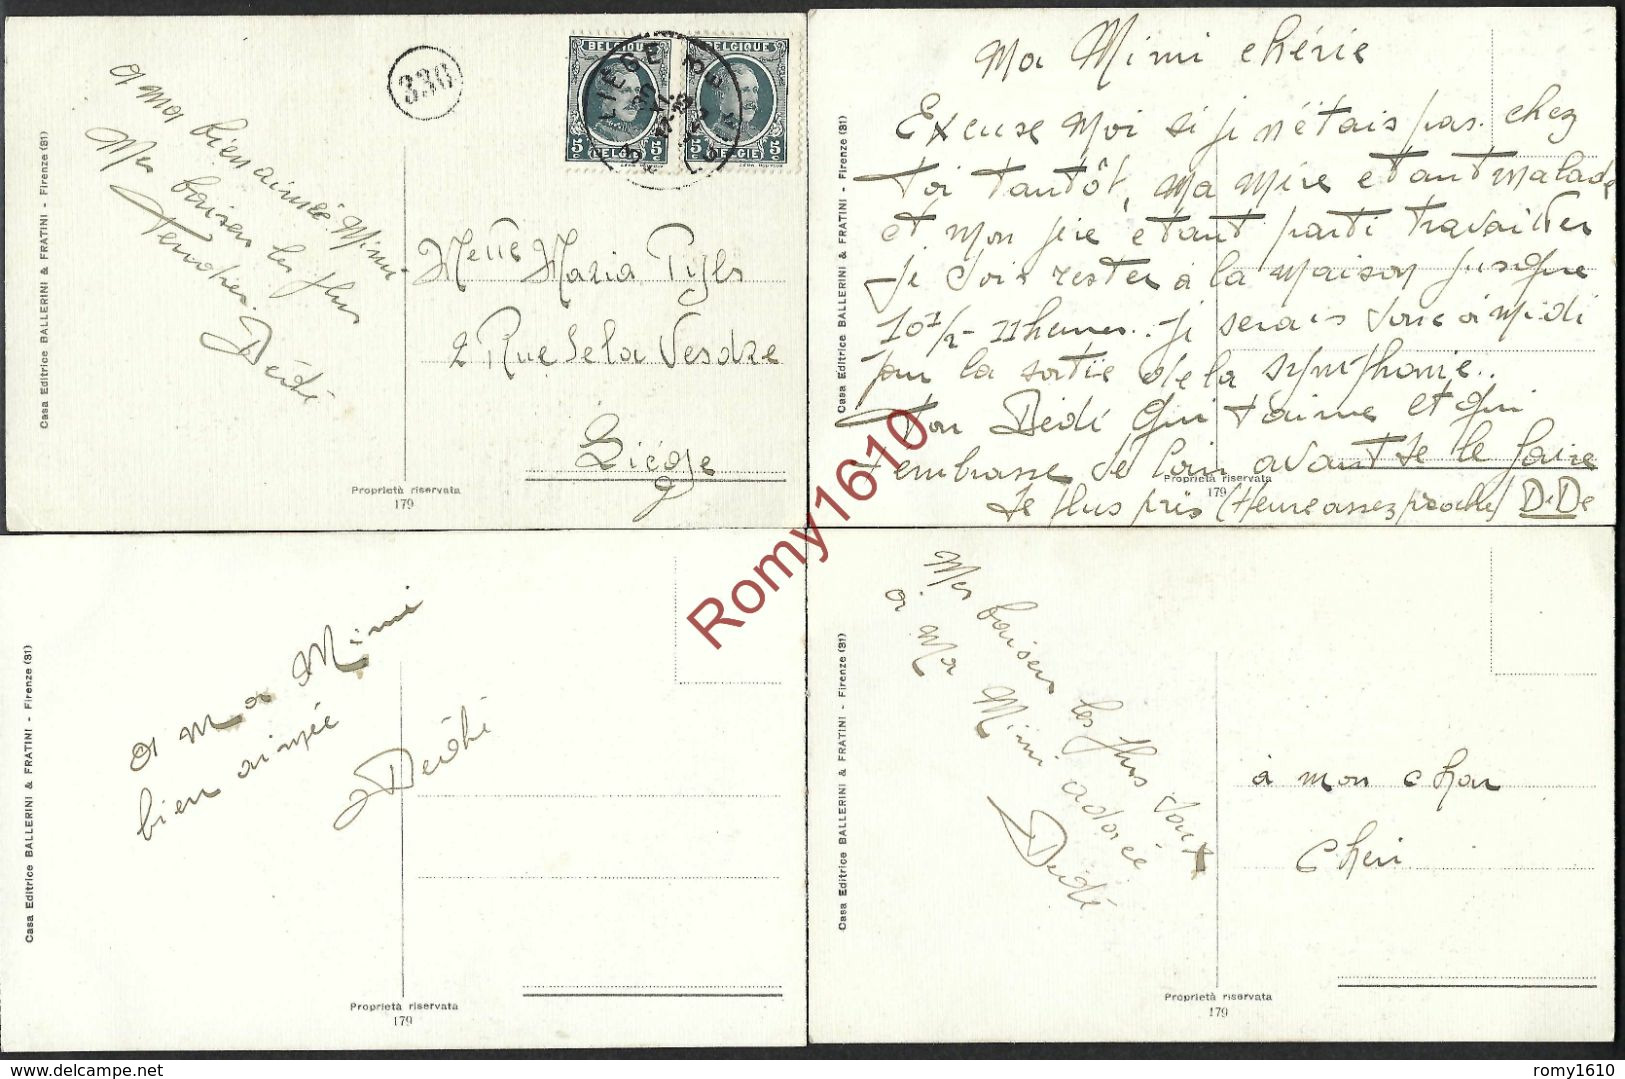 Casa Editrice BALLERINI & FRATINI - Firenze (31)
a Ma bien aimée Mimi
Mes baisers les plus
Tendres.
Dédé
330
BELGIQUE
5c 5c
BELGIE
BELGIQUE
5c 5c
BELGIE
LIEGE
Melle Maria Tyls
2 Rue de la Vesdre
Liége
Proprietà riservata
179
Casa Editrice BALLERINI & FRATINI - Firenze (31)
Ma Mimi chérie
Excuse Moi si je n'étais pas chez
toi tantôt, Ma Mère étant malade
et mon père étant parti travailler
Je dois rester à la maison jusque
10 1/2 - 11 heures.. je serais donc à midi
pour la sortie de la symphonie..
Ton Dédé qui t'aime et qui
t'embrasse de loin avant de le faire
de plus près (Heure assez proche) DéDé
Proprietà riservata
179
Casa Editrice BALLERINI & FRATINI - Firenze (31)
a Ma Mimi
bien aimée
Dédé
Proprietà riservata
179
Casa Editrice BALLERINI & FRATINI - Firenze (31)
Mes baisers les plus doux
a Ma Mimi adorée
Dédé
à mon chou
Chéri
Proprietà riservata
179
Romy1610
romy1610